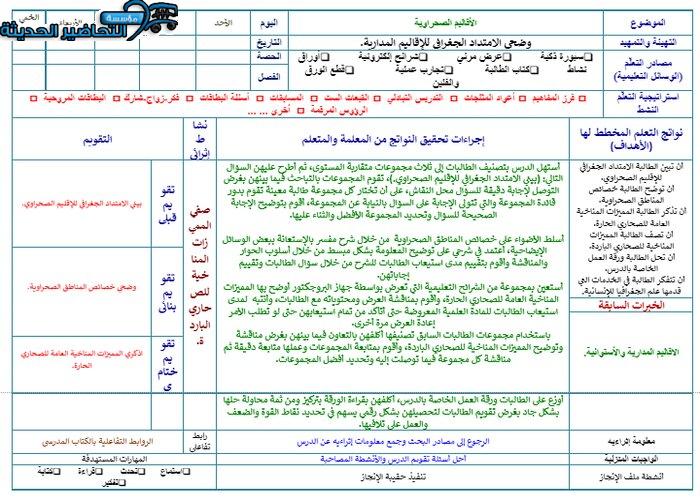 مؤسسة
التحاضير الحديثة
الموضوع
الأقاليم الصحراوية
اليوم
الأحد
الأربعاء
التهيئة والتمهيد
وضحي الامتداد الجغرافي للإقاليم المدارية.
التاريخ
مصادر التعلم
(الوسائل التعليمية)
سبورة ذكية
عرض مرئي
شرائح إلكترونية
أوراق
نشاط
كتاب الطالبة
تجارب عملية
قطع الورق
والفلين
الحصة
الفصل
استراتيجية التعلم
النشط
فرز المفاهيم
أعواد المثلجات
التدريس التبادلي
القبعات الست
المسابقات
أسئلة البطاقات
فكر-زواج-شارك
البطاقات المروحية
الرؤوس المرقمة
أخرى ... ...
نواتج التعلم المخطط لها
(الأهداف)
إجراءات تحقيق النواتج من المعلمة والمتعلم
نشا
ط
إثرائي
التقويم
أن تبين الطالبة الامتداد الجغرافي
للإقليم الصحراوي.
أن توضح الطالبة خصائص
المناطق الصحراوية.
أن تذكر الطالبة المميزات المناخية
العامة للصحاري الحارة.
أن تصف الطالبة المميزات
المناخية للصحاري الباردة.
أن تحل الطالبة ورقة العمل
الخاصة بالدرس.
أن تتفكر الطالبة في الخدمات التي
قدمها علم الجغرافيا للإنسانية.
الخبرات السابقة
الأقاليم المدارية والأستوائية.
أستهل الدرس بتصنيف الطالبات إلى ثلاث مجموعات متقاربة المستوى، ثم أطرح عليهن السؤال
التالي: (بيني الامتداد الجغرافي للإقليم الصحراوي.)، تقوم المجموعات بالتباحث فيما بينهن بغرض
التوصل لإجابة دقيقة للسؤال محل النقاش، على أن تختار كل مجموعة طالبة معينة تقوم بدور
قائدة المجموعة والتي تتولى الإجابة على السؤال بالنيابة عن المجموعة، أقوم بتوضيح الإجابة
الصحيحة للسؤال وتحديد المجموعة الأفضل والثناء عليها.
أسلط الأضواء على خصائص المناطق الصحراوية من خلال شرح مفسر بالإستعانة ببعض الوسائل
الإيضاحية، أعتمد في شرحي على توضيح المعلومة بشكل مبسط من خلال أسلوب الحوار
والمناقشة وأقوم بتقييم مدى استيعاب الطالبات للشرح من خلال سؤال الطالبات وتقييم
إجاباتهن.
أستعين بمجموعة من الشرائح التعليمية التي تعرض بواسطة جهاز البروجكتور أوضح بها المميزات
المناخية العامة للصحاري الحارة، وأقوم بمناقشة العرض ومحتوياته مع الطالبات، وأنتبه لمدى
استيعاب الطالبات للمادة العلمية المعروضة حتى أتأكد من تمام استيعابهن حتى لو تطلب الأمر
إعادة العرض مرة أخرى.
باستخدام مجموعات الطالبات السابق تصنيفها أكلفهن بالتعاون فيما بينهن بغرض مناقشة
وتوضيح المميزات المناخية للصحاري الباردة، وأقوم بمتابعة المجموعات وعملها متابعة دقيقة ثم
مناقشة كل مجموعة فيما توصلت إليه وتحديد أفضل المجموعات.
أوزع على الطالبات ورقة العمل الخاصة بالدرس، أكلفهن بقراءة الورقة بتركيز ومن ثمة محاولة حلها
بشكل جاد بغرض تقويم الطالبات لتحصيلهن بشكل رقمي يسهم في تحديد نقاط القوة والضعف
والعمل على تلافيها.
صفي
الممي
زات
المنا
خية
للص
حاري
البارد
ة.
تقو
يم
قبلي
بيني الامتداد الجغرافي للإقليم الصحراوي.
تقو
يم
بنائي
وضحي خصائص المناطق الصحراوية.
تقو
يم
ختام
ي
اذكري المميزات المناخية العامة للصحاري
الحارة.
معلومة إثرائية
الرجوع إلى مصادر البحث وجمع معلومات إثرائية عن الدرس
رابط
تفاعلي
الروابط التفاعلية بالكتاب المدرسي
الواجبات المنزلية
أحل أسئلة تقويم الدرس والأنشطة المصاحبة
المهارات المستهدفة
أنشطة ملف الإنجاز
تنفيذ حقيبة الإنجاز
استماع
تحدث
قراءة
كتابة
تفكير